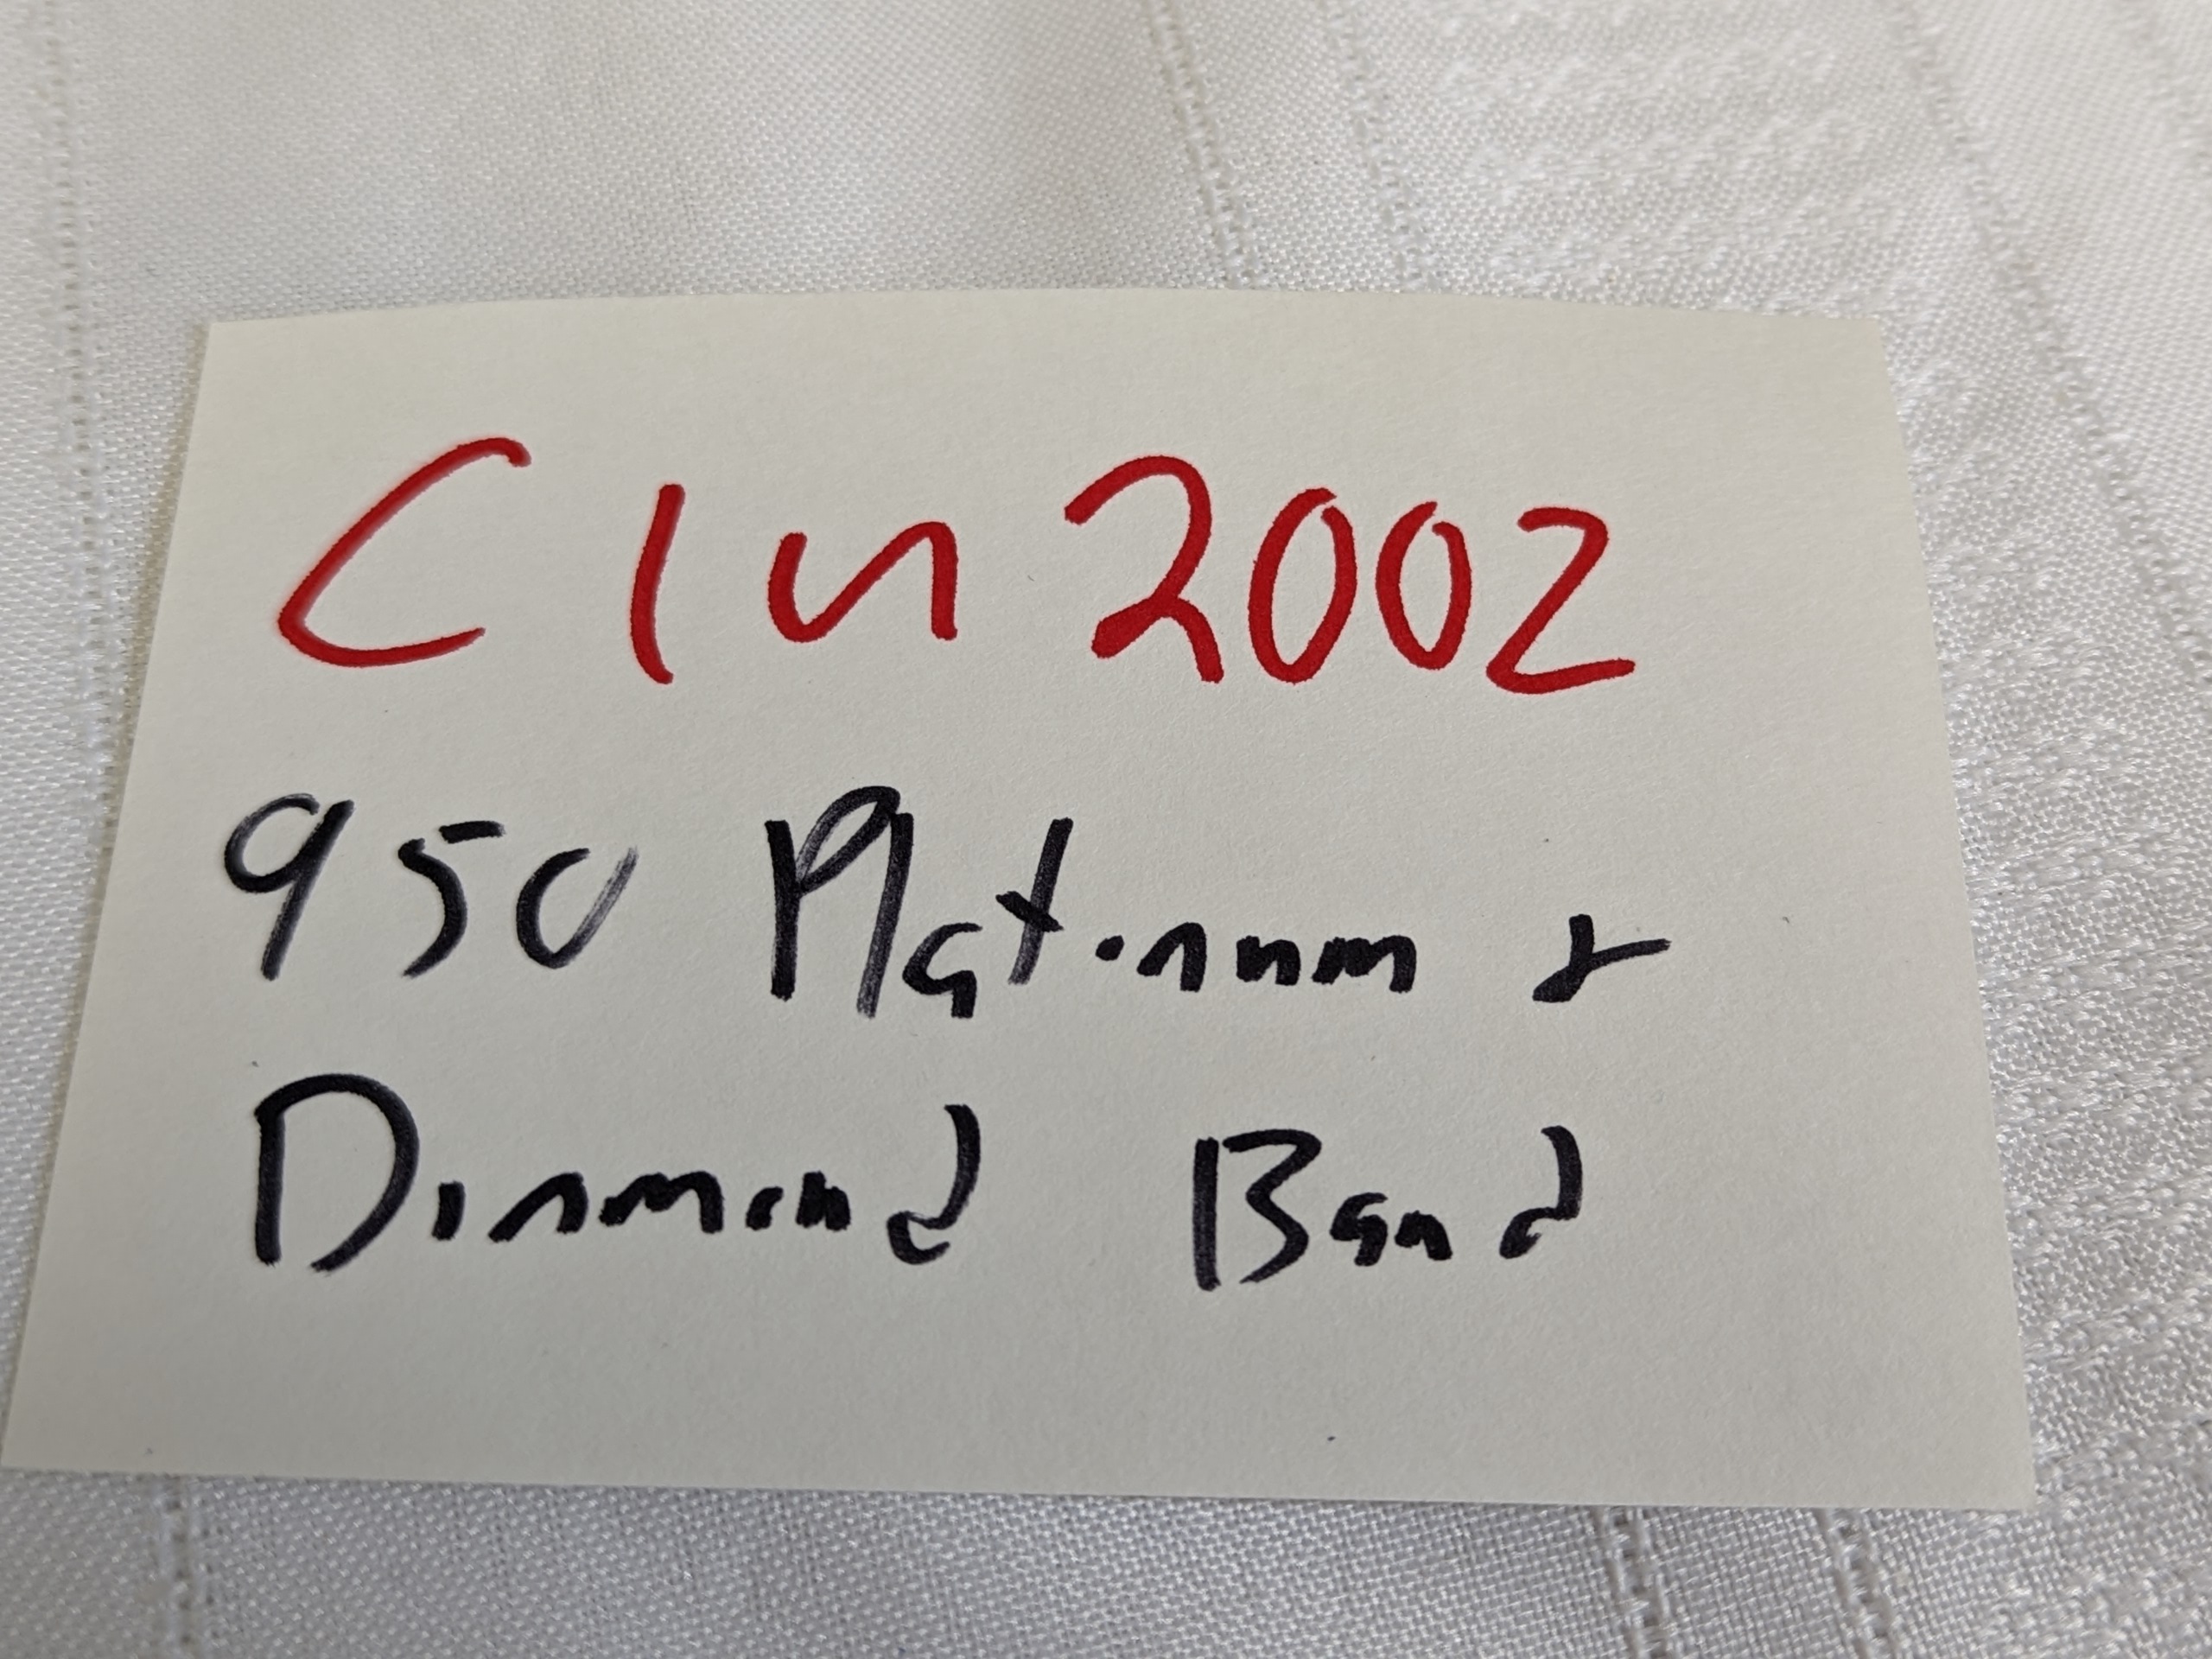 C1u2002
950 Platinum &
Diamond Band